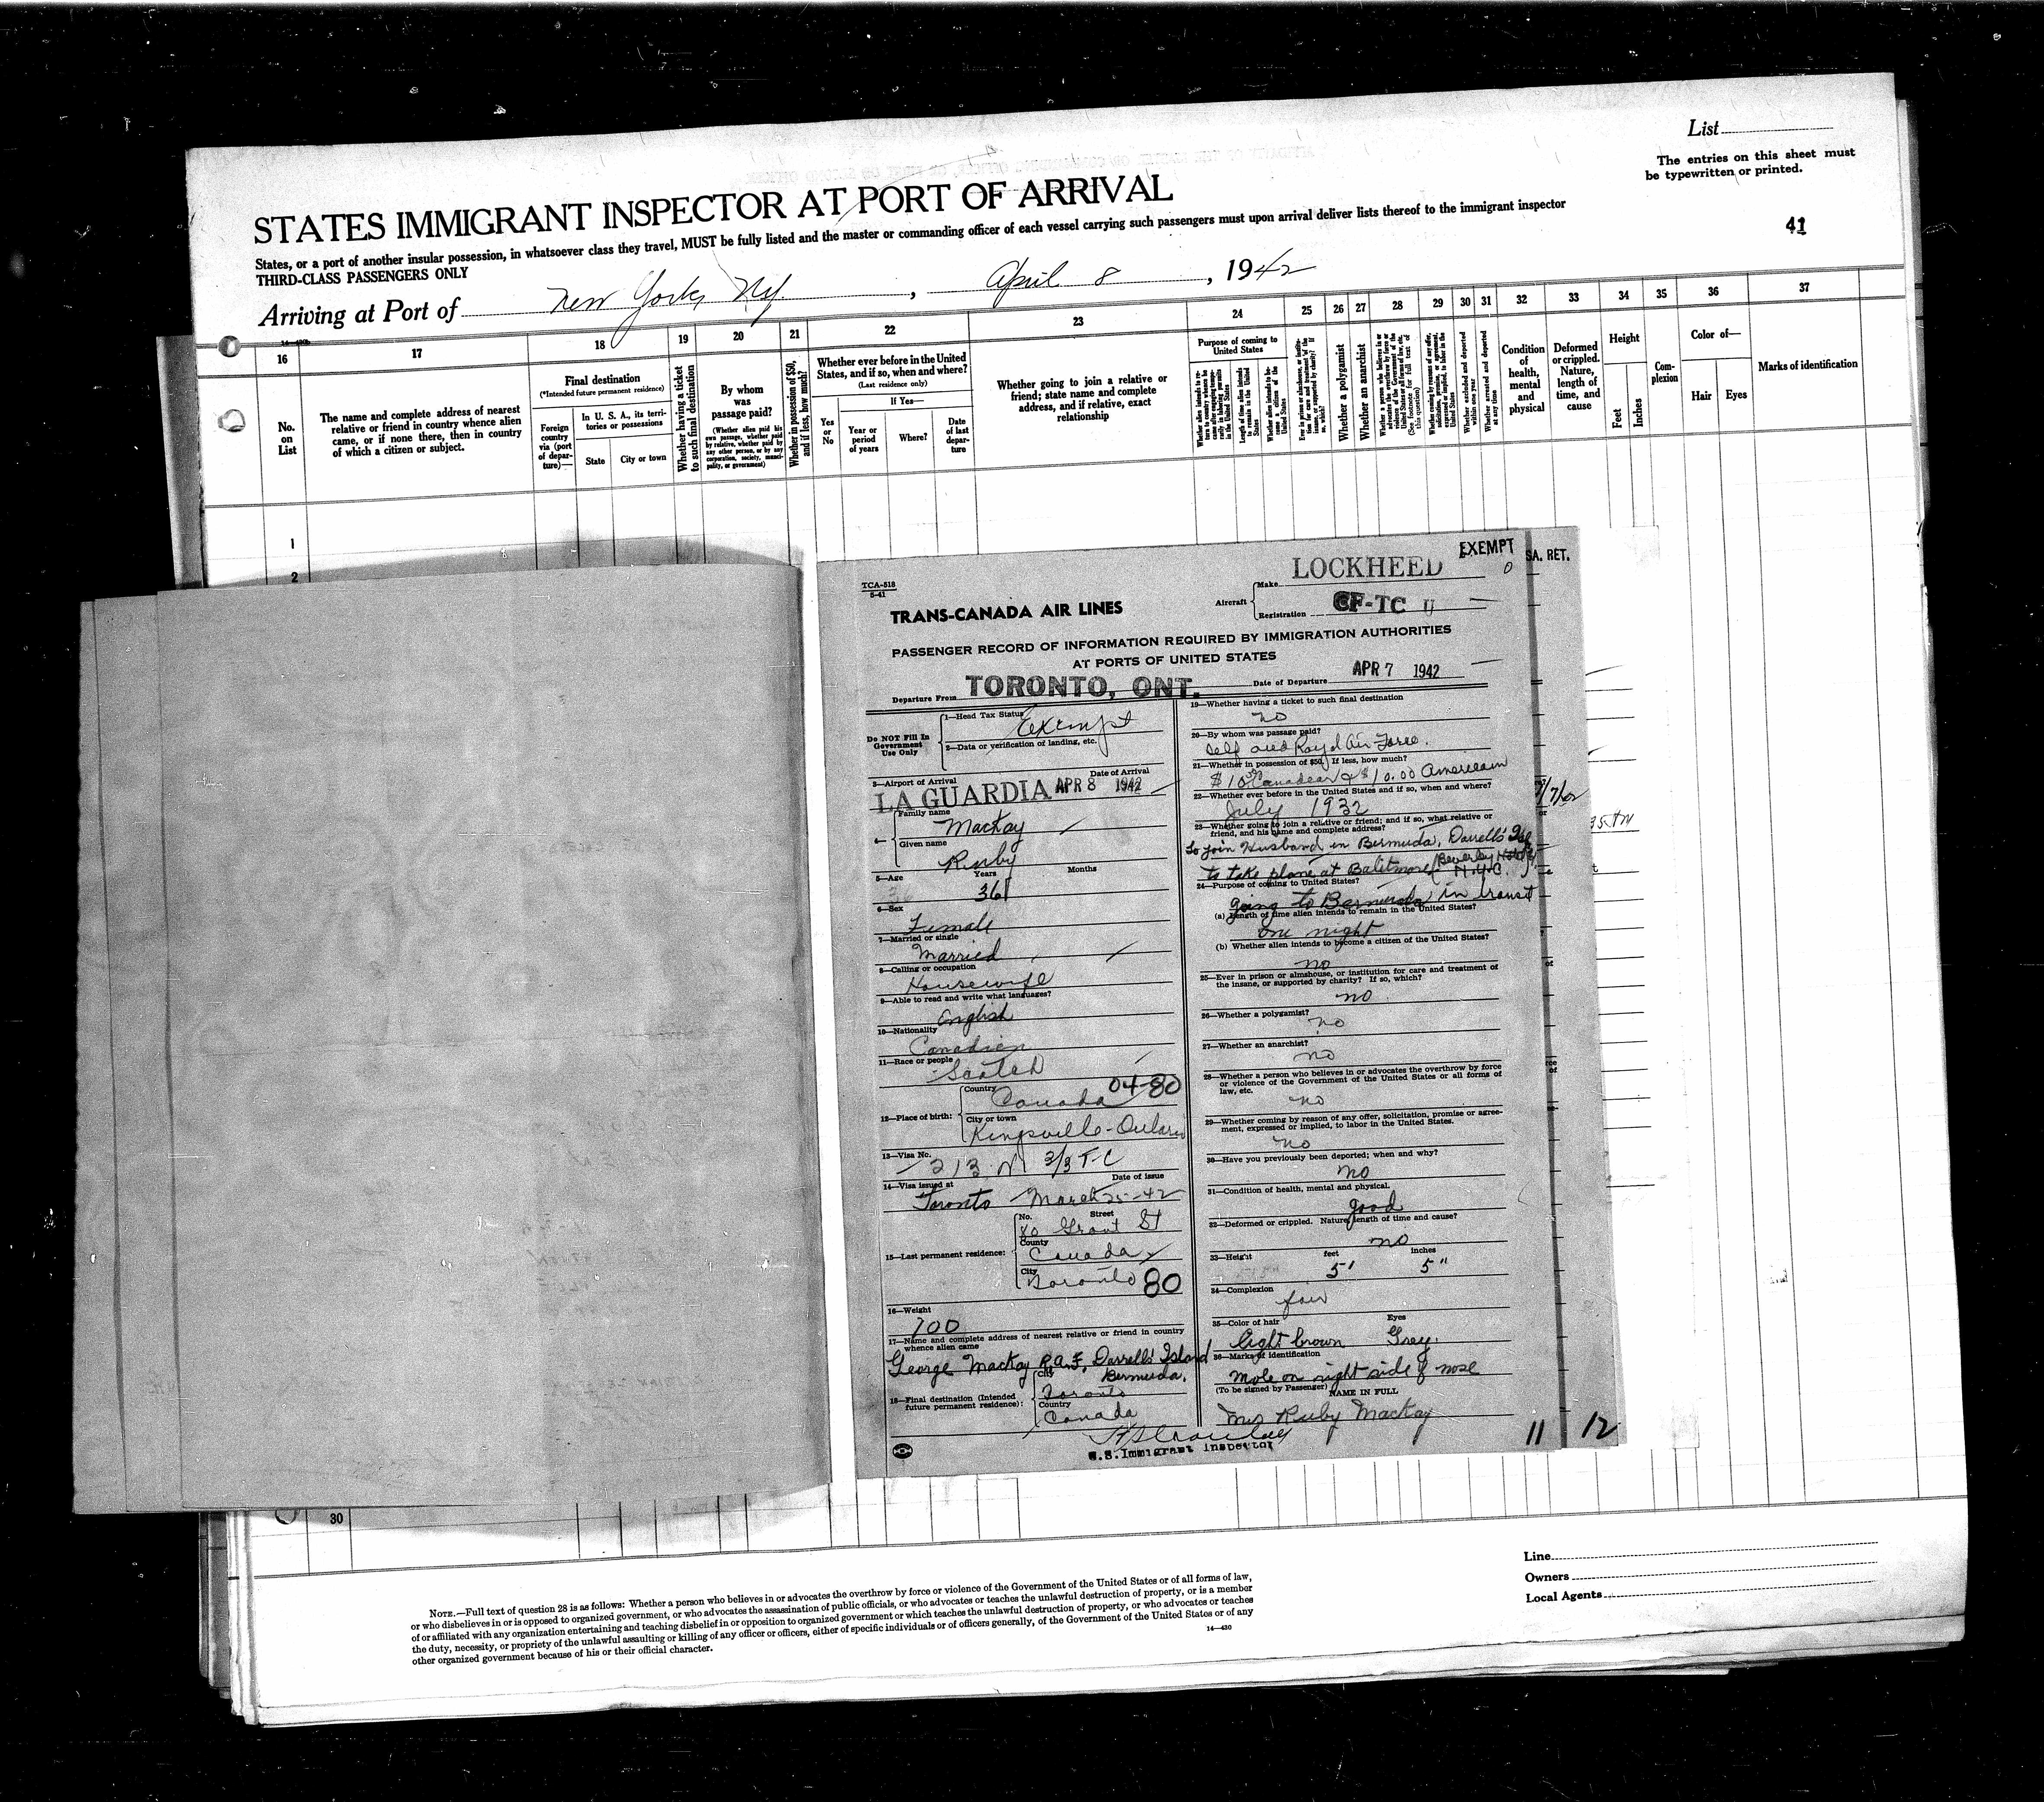 List
The entries on this sheet must
be typewritten or printed.
STATES IMMIGRANT INSPECTOR AT PORT OF ARRIVAL
41
States, or a port of another insular possession, in whatsoever class they travel, MUST be fully listed and the master or commanding officer of each vessel carrying such passengers must upon arrival deliver lists thereof to the immigrant inspector
THIRD-CLASS PASSENGERS ONLY
Arriving at Port of New York, NY. , April 8 , 1942
16 17 18 19 20 21 22 23 24 25 26 27 28 29 30 31 32 33 34 35 36 37
No.
on
List
The name and complete address of nearest
relative or friend in country whence alien
came, or if none there, then in country
of which a citizen or subject.
Final destination
(*Intended future permanent residence)
Foreign
country
via (port
of depar-
ture)—
In U. S. A., its terri-
tories or possessions
State
City or town
Whether having a ticket
to such final destination
By whom
was
passage paid?
(Whether alien paid his
own passage, whether paid
by relative, whether paid by
any other person, or by any
corporation, society, munici-
pality, or government)
Whether in possession of $50,
and if less, how much?
Whether ever before in the United
States, and if so, when and where?
(Last residence only)
Yes
or
No
If Yes—
Year or
period
of years
Where?
Date
of last
depar-
ture
Whether going to join a relative or
friend; state name and complete
address, and if relative, exact
relationship
Purpose of coming to
United States
Whether a polygamist
Whether an anarchist
Whether excluded and deported
within one year
Whether arrested and deported
at any time
Condition
of
health,
mental
and
physical
Deformed
or crippled.
Nature,
length of
time, and
cause
Height
Feet
Inches
Com-
plexion
Color of—
Hair
Eyes
Marks of identification
1
2
30
TCA-518
5-41
TRANS-CANADA AIR LINES
Aircraft
Make LOCKHEED
EXEMPT
SA. RET.
Registration CF-TC U
PASSENGER RECORD OF INFORMATION REQUIRED BY IMMIGRATION AUTHORITIES
AT PORTS OF UNITED STATES
Departure From TORONTO, ONT. Date of Departure APR 7 1942
Do NOT Fill In
Government
Use Only
1—Head Tax Status Exempt
2—Data or verification of landing, etc.
3—Airport of Arrival Date of Arrival
LA GUARDIA APR 8 1942
4— Family name
Mackay
Given name
Ruby
5—Age Years Months
36
6—Sex
Female
7—Married or single
Married
8—Calling or occupation
Housewife
9—Able to read and write what languages?
English
10—Nationality
Canadian
11—Race or people
Scotch
12—Place of birth: Country
Canada 04-80
City or town
Kingsville-Ontario
13—Visa No.
213
14—Visa issued at Date of issue
Toronto March 25-42
15—Last permanent residence:
No. Street
80 Grant St
County
Canada
City
Toronto 80
16—Weight
100
17—Name and complete address of nearest relative or friend in country
whence alien came
George Mackay R.A.F, Darrell's Island
Bermuda.
18—Final destination (Intended
future permanent residence):
City
Toronto
Country
Canada
U.S.Immigrant Inspector
19—Whether having a ticket to such final destination
no
20—By whom was passage paid?
Self and Royal Air Force.
21—Whether in possession of $50, If less, how much?
$10 Canadian & $10.00 American
22—Whether ever before in the United States and if so, when and where?
July 1932
23—Whether going to join a relative or friend; and if so, what relative or
friend, and his name and complete address?
To join Husband in Bermuda, Darrell's Isl
to take plane at Baltimore, Beverly Hotel N.Y.C.
24—Purpose of coming to United States?
going to Bermuda in transit
(a) Length of time alien intends to remain in the United States?
one night
(b) Whether alien intends to become a citizen of the United States?
no
25—Ever in prison or almshouse, or institution for care and treatment of
the insane, or supported by charity? If so, which?
no
26—Whether a polygamist?
no
27—Whether an anarchist?
no
28—Whether a person who believes in or advocates the overthrow by force
or violence of the Government of the United States or all forms of
law, etc.
no
29—Whether coming by reason of any offer, solicitation, promise or agree-
ment, expressed or implied, to labor in the United States.
no
30—Have you previously been deported; when and why?
no
31—Condition of health, mental and physical.
good
32—Deformed or crippled. Nature, length of time and cause?
no
33—Height feet inches
5' 5"
34—Complexion
fair
35—Color of hair Eyes
light brown Grey.
36—Marks of identification
Mole on right side of nose
(To be signed by Passenger) NAME IN FULL
Mrs Ruby Mackay
11 12
Line
Owners
Local Agents
NOTE.—Full text of question 28 is as follows: Whether a person who believes in or advocates the overthrow by force or violence of the Government of the United States or of all forms of law,
or who disbelieves in or is opposed to organized government, or who advocates the assassination of public officials, or who advocates or teaches the unlawful destruction of property, or is a member
of or affiliated with any organization entertaining and teaching disbelief in or opposition to organized government or which teaches the unlawful destruction of property, or who advocates or teaches
the duty, necessity, or propriety of the unlawful assaulting or killing of any officer or officers, either of specific individuals or of officers generally, of the Government of the United States or of any
other organized government because of his or their official character.
14—430